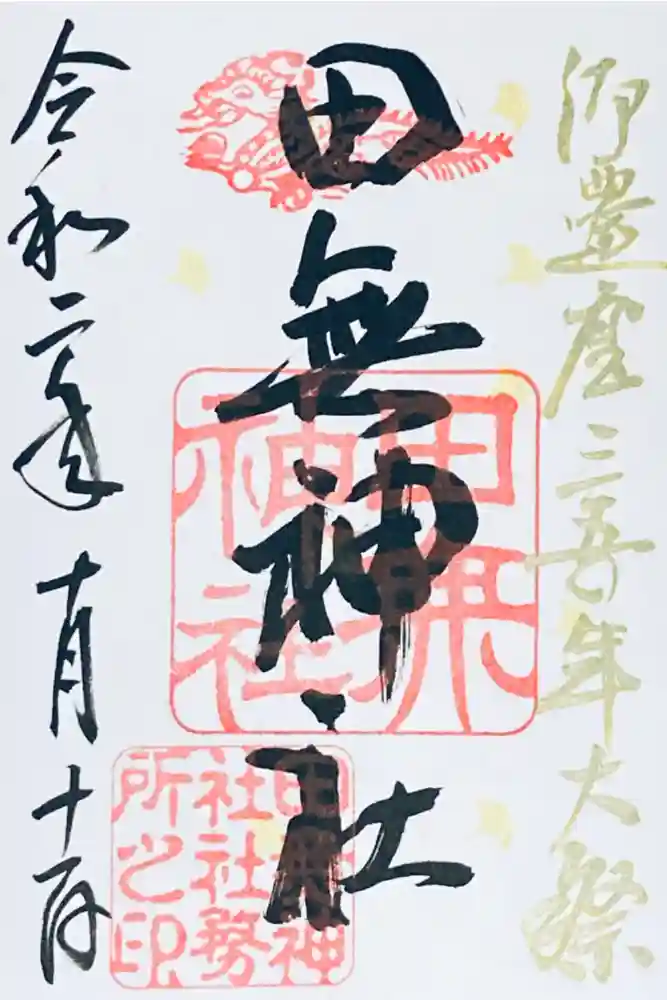 御遷座三五〇年大祭
田無神社
田无神社
田無神
社社務
所之印
令和二年十月十一日